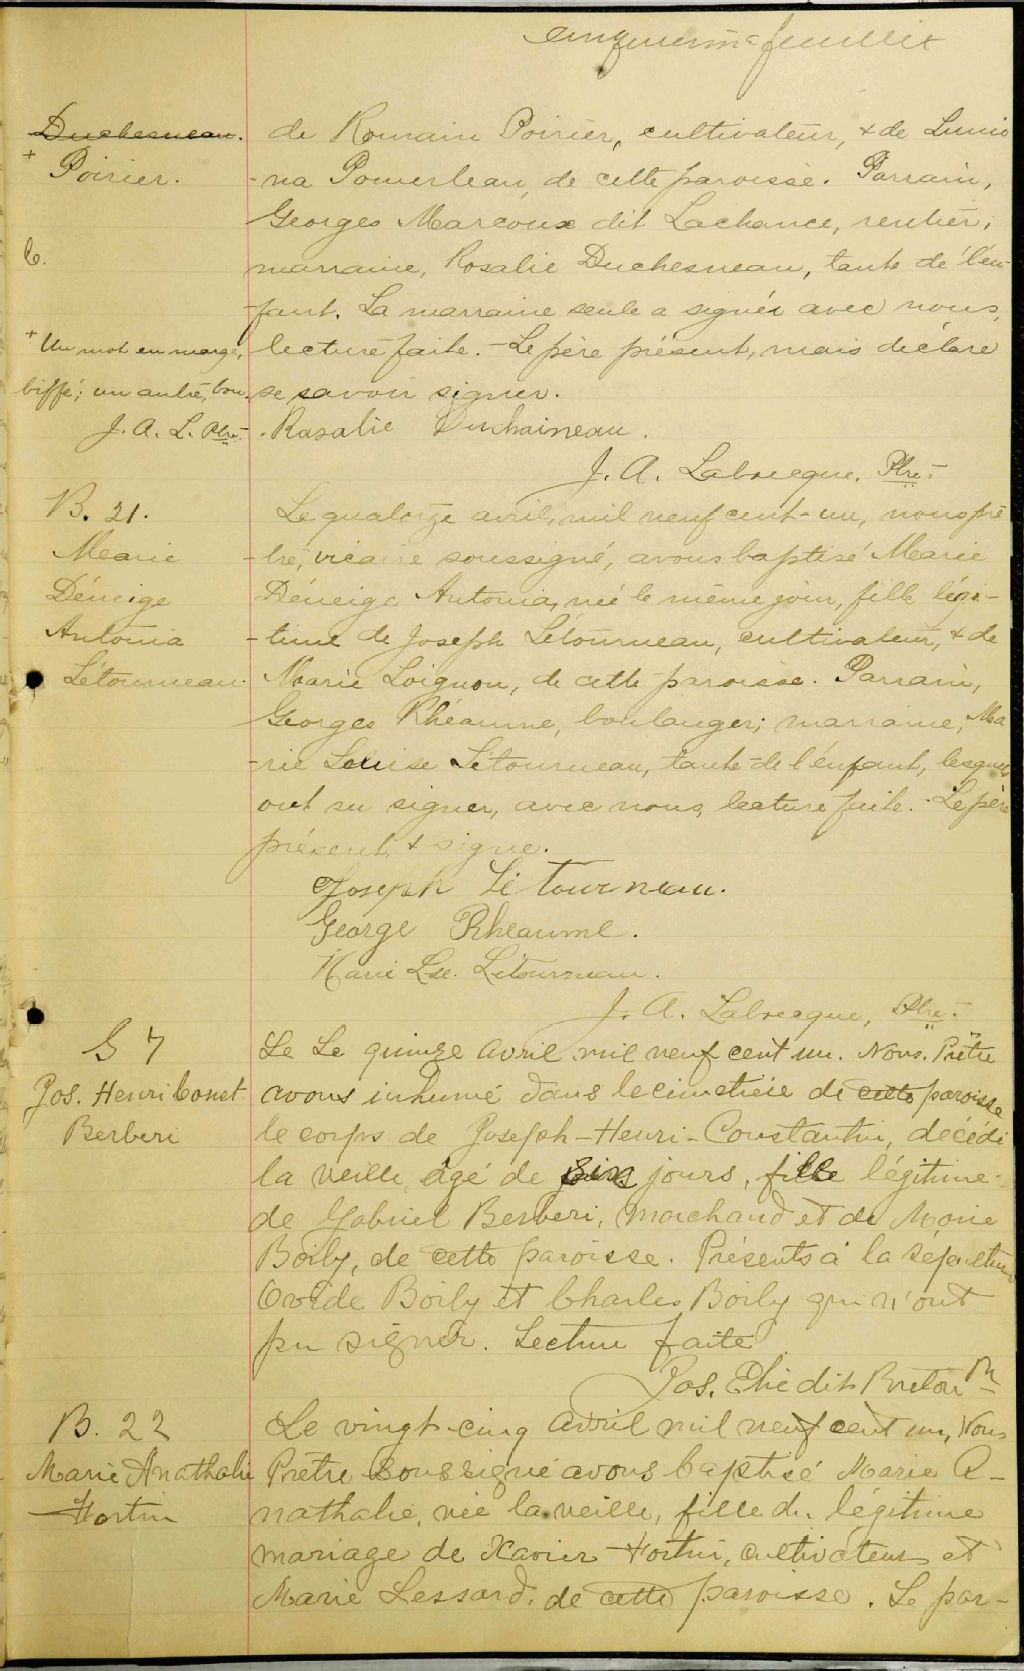 cinquième feuillet
Duchesneau. de Romain Poirier, cultivateur, & de Lumi-
+ Poirier. -na Pomerleau, de cette paroisse. Parrain,
Georges Marcoux dit Lachance, rentier;
C. marraine, Rosalie Duchesneau, tante de l'en-
-fant. La marraine seule a signé avec nous,
+ Un mot en marge, lecture faite. - Le père présent, mais déclare
biffé; un autre, bon. se savoir signer.
J. A. L. Ptre - . Rosalie Duchaineau.
J. A. Labrecque, Ptre -
B. 21. Le quatorze avril, mil neuf cent-un, nous prê
Marie -tre, vicaire soussigné, avons baptisé Marie
Déneige Déneige Antonia, née le même jour, fille légi-
Antonia -time de Joseph Létourneau, cultivateur, & de
Létourneau. Marie Loignon, de cette paroisse. Parrain,
Georges Rhéaume, boulanger; marraine, Ma
-rie Louise Létourneau, tante de l'enfant, lesquels
ont su signer, avec nous, lecture faite. - Le père
présent & signe.
Joseph Létourneau.
George Rheaume.
Marie Lse. Létourneau.
J. A. Labrecque, Ptre. -
S 7 Le Le quinze avril mil neuf cent un. Nous. Prêtre
Jos. Henri Const. avons inhumé dans le cimetière de cette paroisse
Berberi le corps de Joseph-Henri-Constantin, décédé
la veille, âgé de six jours, fille légitime
de Gabriel Berberi, marchand et de Marie
Boily, de cette paroisse. Présents à la sépulture
Ovide Boily et Charles Boily qui n'ont
pu signer. Lecture faite
Jos. Elie dit Breton Ptr
B. 22 Le vingt-cinq avril mil neuf cent un, Nous
Marie Anathalie Prêtre Soussigné avons baptisé Marie A-
Fortin nathalie, née la veille, fille du légitime
mariage de Xavier Fortin, cultivateur et
Marie Lessard, de cette paroisse. Le par-